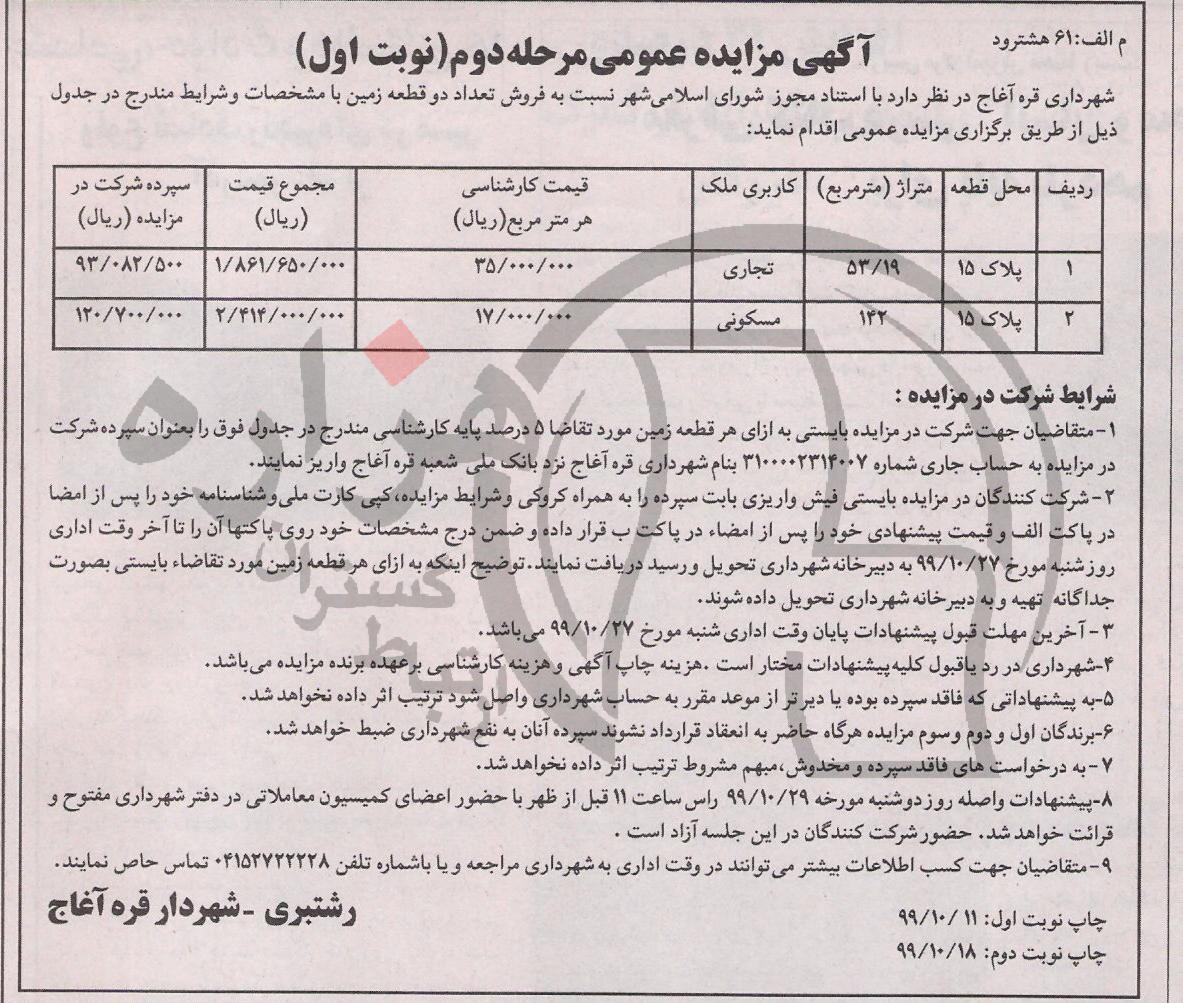 م الف:۶۱ هشترود
آگهی مزایده عمومی مرحله دوم (نوبت اول)
شهرداری قره آغاج در نظر دارد با استناد مجوز شورای اسلامی شهر نسبت به فروش تعداد دو قطعه زمین با مشخصات و شرایط مندرج در جدول
ذیل از طریق برگزاری مزایده عمومی اقدام نماید:
ردیف محل قطعه متراژ (مترمربع) کاربری ملک قیمت کارشناسی هر متر مربع(ریال) مجموع قیمت (ریال) سپرده شرکت در مزایده (ریال)
۱ پلاک ۱۵ ۵۳/۱۹ تجاری ۳۵/۰۰۰/۰۰۰ ۱/۸۶۱/۶۵۰/۰۰۰ ۹۳/۰۸۲/۵۰۰
۲ پلاک ۱۵ ۱۴۲ مسکونی ۱۷/۰۰۰/۰۰۰ ۲/۴۱۴/۰۰۰/۰۰۰ ۱۲۰/۷۰۰/۰۰۰
شرایط شرکت در مزایده :
۱-متقاضیان جهت شرکت در مزایده بایستی به ازای هر قطعه زمین مورد تقاضا ۵ درصد پایه کارشناسی مندرج در جدول فوق را بعنوان سپرده شرکت
در مزایده به حساب جاری شماره ۳۱۰۰۰۰۲۳۱۴۰۰۷ بنام شهرداری قره آغاج نزد بانک ملی شعبه قره آغاج واریز نمایند.
۲-شرکت کنندگان در مزایده بایستی فیش واریزی بابت سپرده را به همراه کروکی و شرایط مزایده،کپی کارت ملی و شناسنامه خود را پس از امضا
در پاکت الف و قیمت پیشنهادی خود را پس از امضاء در پاکت ب قرار داده و ضمن درج مشخصات خود روی پاکتها آن را تا آخر وقت اداری
روز شنبه مورخ ۹۹/۱۰/۲۷ به دبیرخانه شهرداری تحویل و رسید دریافت نمایند.توضیح اینکه به ازای هر قطعه زمین مورد تقاضاء بایستی بصورت
جداگانه تهیه و به دبیرخانه شهرداری تحویل داده شوند.
۳- آخرین مهلت قبول پیشنهادات پایان وقت اداری شنبه مورخ ۹۹/۱۰/۲۷ می باشد.
۴-شهرداری در رد یا قبول کلیه پیشنهادات مختار است .هزینه چاپ آگهی و هزینه کارشناسی برعهده برنده مزایده می باشد.
۵-به پیشنهاداتی که فاقد سپرده بوده یا دیر تر از موعد مقرر به حساب شهرداری واصل شود ترتیب اثر داده نخواهد شد.
۶-برندگان اول و دوم و سوم مزایده هرگاه حاضر به انعقاد قرارداد نشوند سپرده آنان به نفع شهرداری ضبط خواهد شد.
۷-به درخواست های فاقد سپرده و مخدوش،مبهم مشروط ترتیب اثر داده نخواهد شد.
۸-پیشنهادات واصله روز دوشنبه مورخه ۹۹/۱۰/۲۹ راس ساعت ۱۱ قبل از ظهر با حضور اعضای کمیسیون معاملاتی در دفتر شهرداری مفتوح و
قرائت خواهد شد. حضور شرکت کنندگان در این جلسه آزاد است .
۹-متقاضیان جهت کسب اطلاعات بیشتر می توانند در وقت اداری به شهرداری مراجعه و یا باشماره تلفن ۰۴۱۵۲۷۲۲۲۲۸ تماس حاص نمایند.
رشتبری -شهردار قره آغاج
چاپ نوبت اول: ۱۱ /۹۹/۱۰
چاپ نوبت دوم: ۹۹/۱۰/۱۸
هزاره
گستران
ارتباط